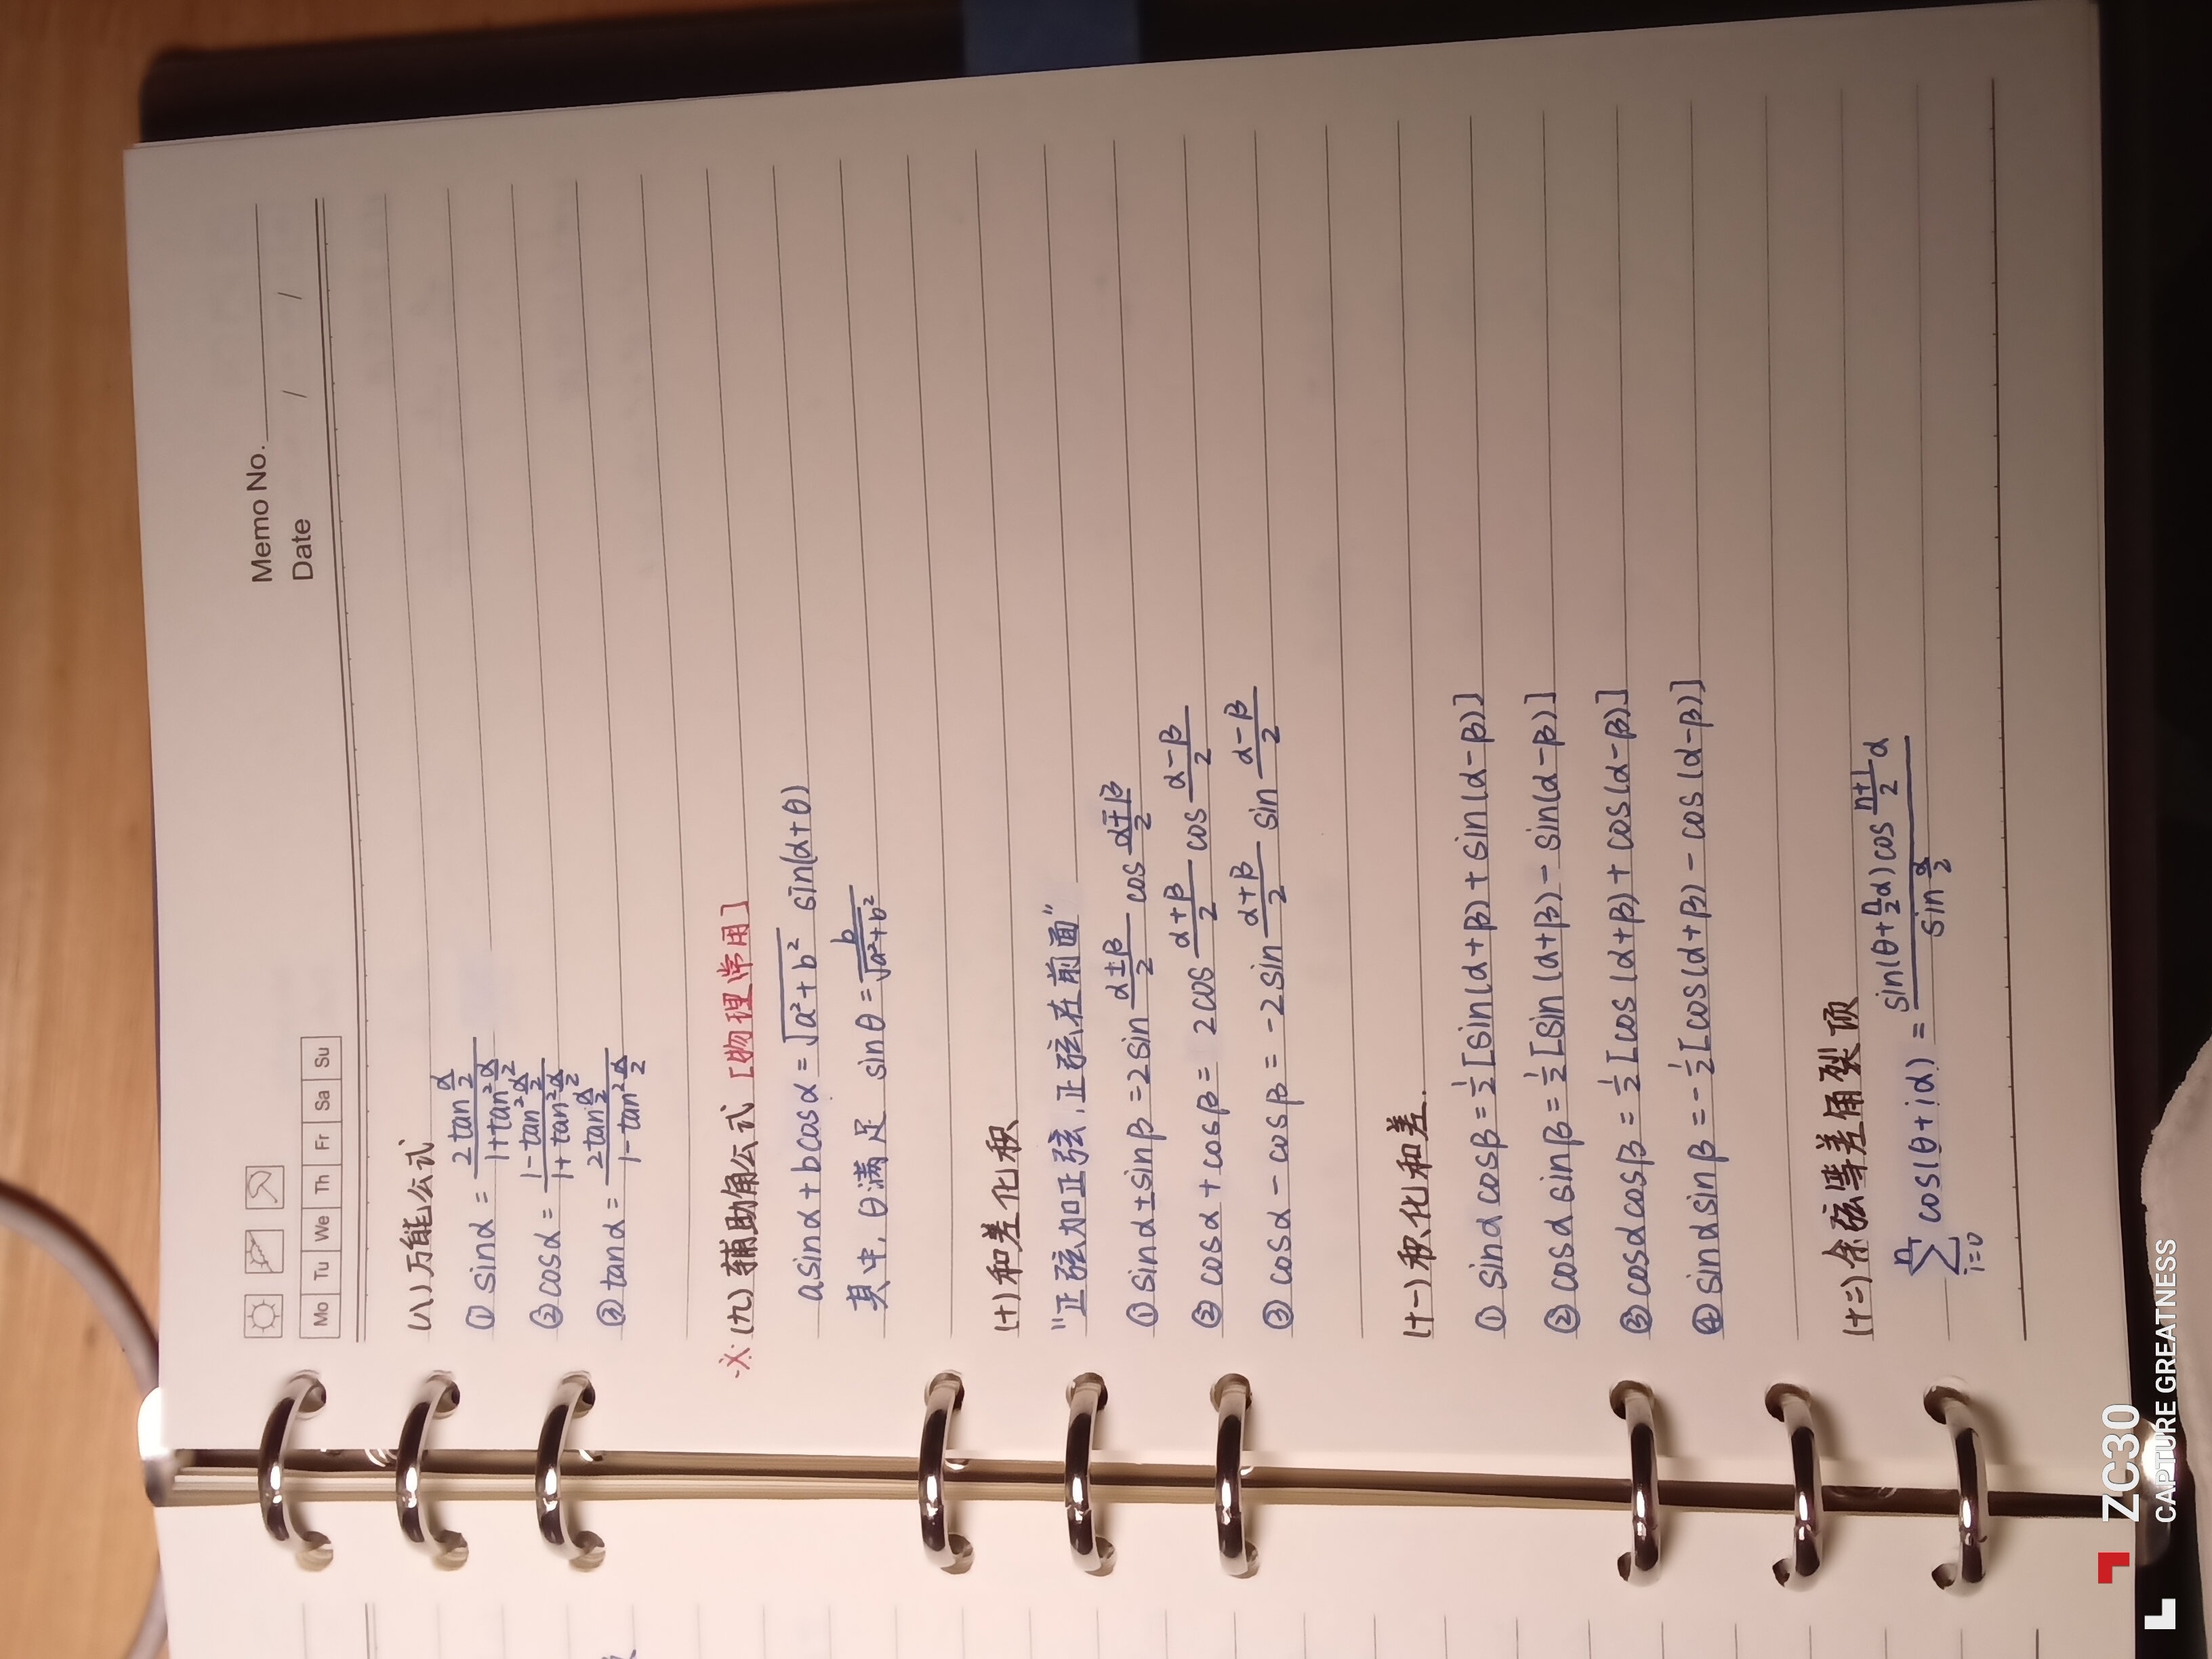 Memo No.
Date / /
Mo Tu We Th Fr Sa Su
(八)万能公式
① sinα = \frac{2tan\frac{α}{2}}{1+tan²\frac{α}{2}}
② cosα = \frac{1-tan²\frac{α}{2}}{1+tan²\frac{α}{2}}
③ tanα = \frac{2tan\frac{α}{2}}{1-tan²\frac{α}{2}}
※(九)辅助角公式 [物理常用]
asinα + bcosα = \sqrt{a²+b²} sin(α+θ)
其中,θ满足 sinθ = \frac{b}{\sqrt{a²+b²}}
(十)和差化积
"正弦加正弦,正弦在前面"
① sinα±sinβ = 2sin\frac{α±β}{2}cos\frac{α∓β}{2}
② cosα + cosβ = 2cos\frac{α+β}{2}cos\frac{α-β}{2}
③ cosα - cosβ = -2sin\frac{α+β}{2}sin\frac{α-β}{2}
(十一)积化和差.
① sinαcosβ = ½[sin(α+β)+sin(α-β)]
② cosαsinβ = ½[sin(α+β)-sin(α-β)]
③ cosαcosβ = ½[cos(α+β)+cos(α-β)]
④ sinαsinβ = -½[cos(α+β)-cos(α-β)]
(十二)余弦等差角裂项
\sum_{i=0}^{n} cos(θ+iα) = \frac{sin(θ+\frac{n}{2}α)cos\frac{n+1}{2}α}{sin\frac{α}{2}}
ZC30
CAPTURE GREATNESS